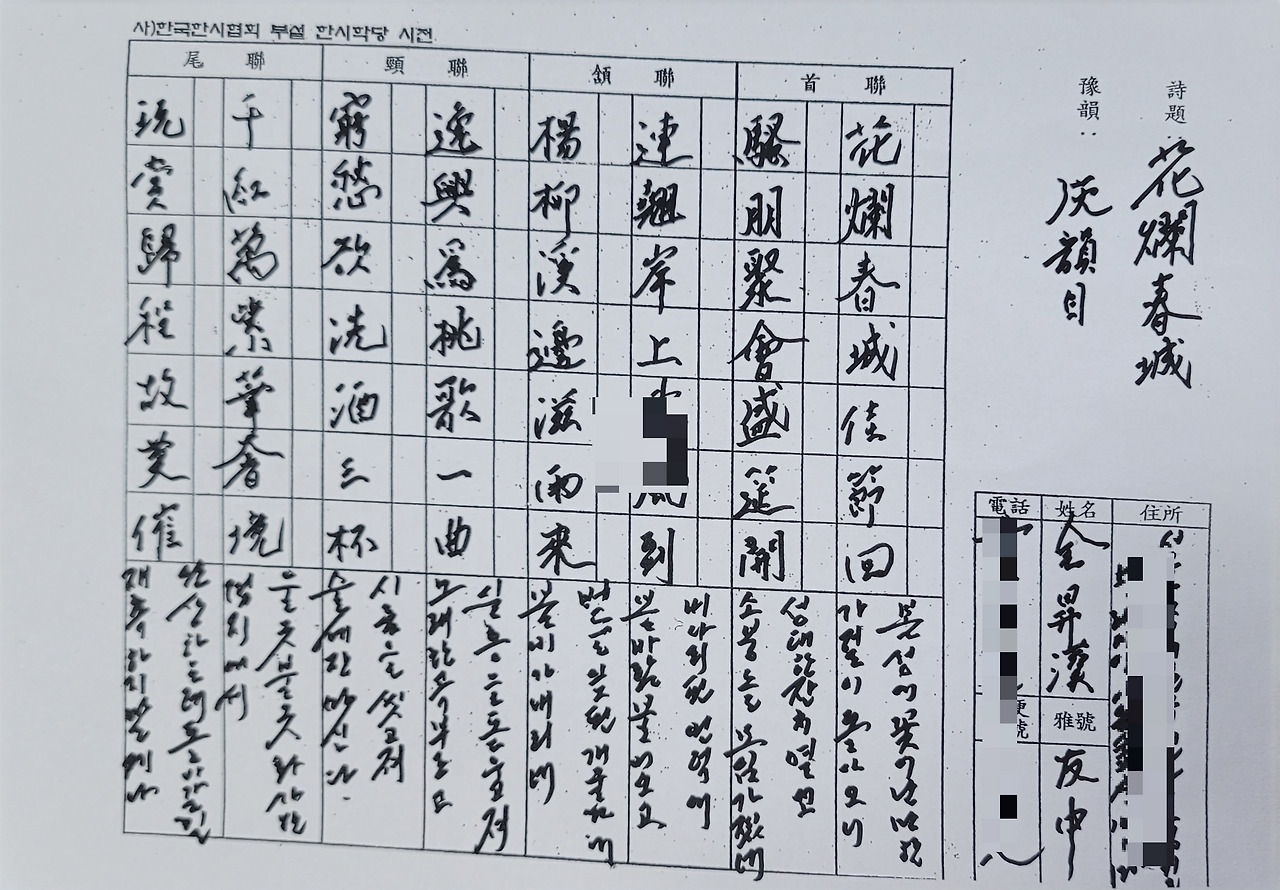 사)한국한시협회 부설 한시학당 시전
詩題 : 花爛春城
豫韻 : 灰韻目
首聯
花爛春城佳節回
騷朋聚會盛筵開
頷聯
連翹岸上
風到
楊柳溪邊滋雨來
頸聯
逸興爲挑歌一曲
窮愁欲洗酒三杯
尾聯
千紅萬紫華奢境
玩賞歸程故莫催
봄성에 꽃이 난만한
가절이 돌아오니
성대한 잔치 열고
소붕들 모임 가졌네
개나리 핀 언덕에
봄바람 불어오고
버들잎 핀 개울가에
봄비가 내리네
노래 한 곡 부르고
시름을 씻고저
술 세잔 마신다
울긋불긋 화사한
경치에서
완상하는데 돌아갈 길
재촉하지 말게나
住所
姓名
金昇漢
雅號
友中
電話